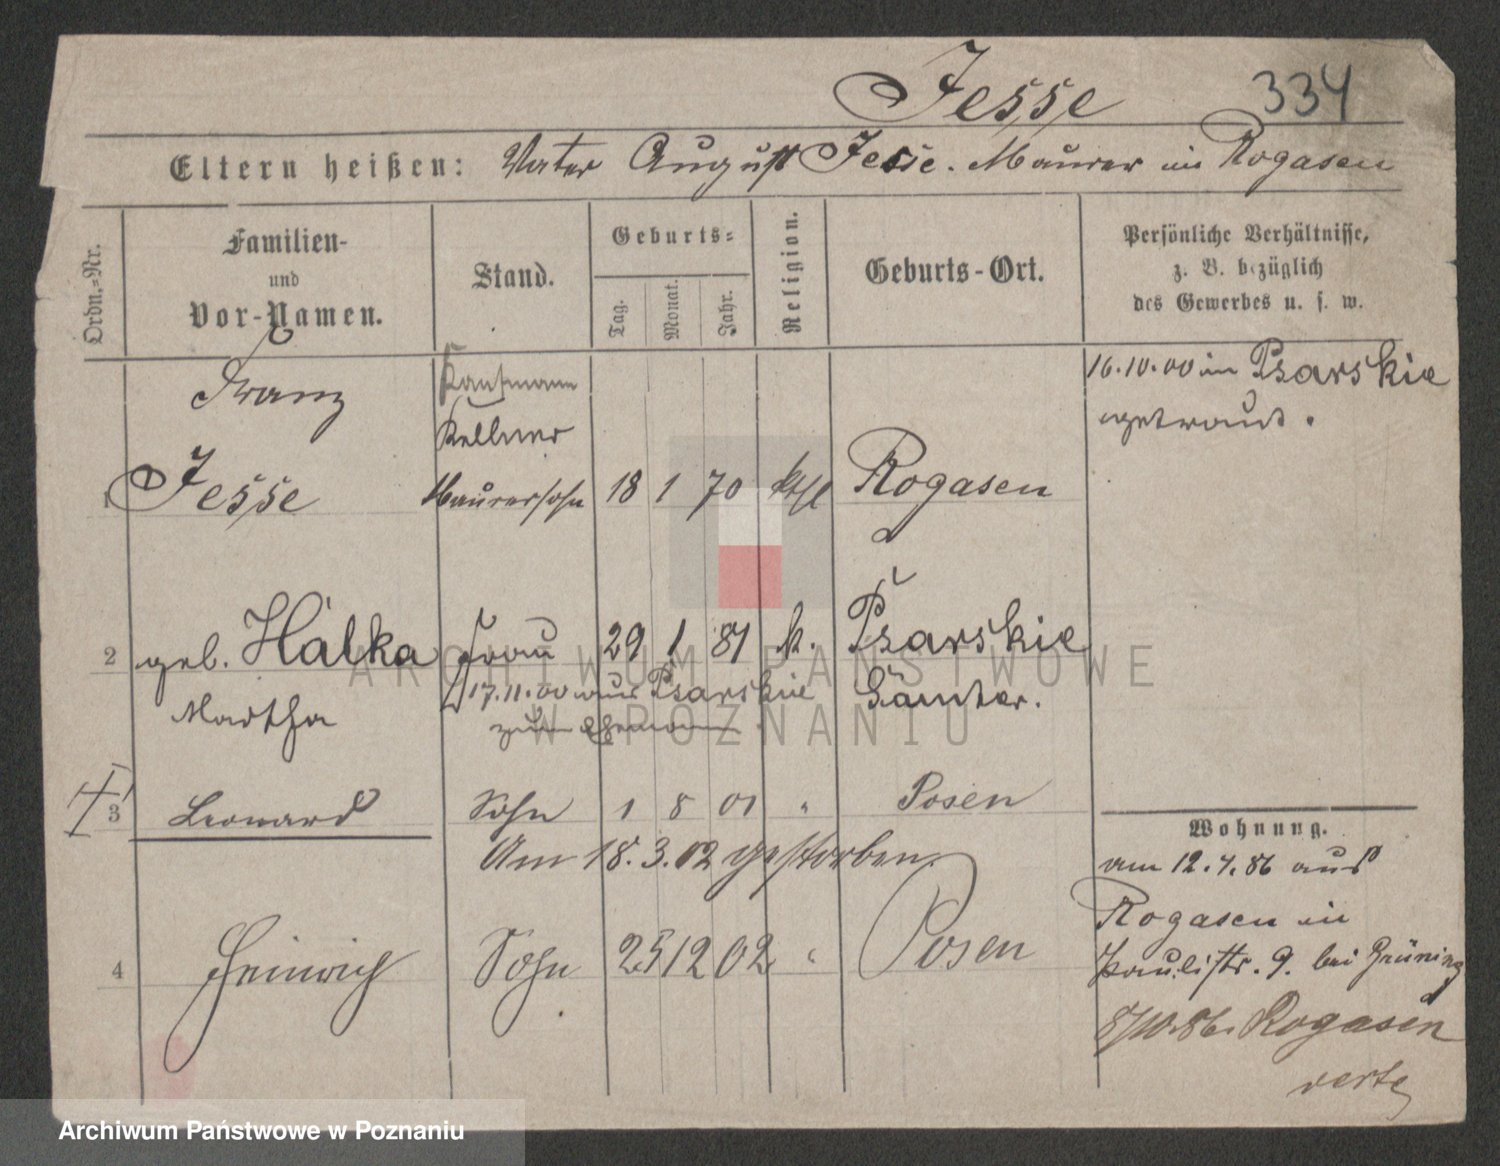 Jesse 334
Eltern heißen: Vater August Jesse. Maurer in Rogasen
Ordn.-Nr.
Familien-
und
Vor-Namen.
Stand.
Geburts-
Tag.
Monat.
Jahr.
Religion.
Geburts-Ort.
Persönliche Verhältnisse,
z. B. bezüglich
des Gewerbes u. s. w.
Franz
Kaufmann
Kellner
1 Jesse Maurersohn 18 1 70 kthl Rogasen
16.10.00 in Psarskie
getraut.
2 geb. Halka Frau 29 1 81 k. Psarskie
Martha 17.11.00 aus Psarskie Samter.
zum Ehemann
3 Leonard Sohn 1 8 01 " Posen
Am 18.3.02 gestorben.
4 Heinrich Sohn 25 12 02 " Posen
Wohnung.
am 12.4.86 aus
Rogasen in
Paulistr. 9. bei Grüning
8/10.86. Rogasen
verte
ARCHIWUM PAŃSTWOWE
W POZNANIU
Archiwum Państwowe w Poznaniu